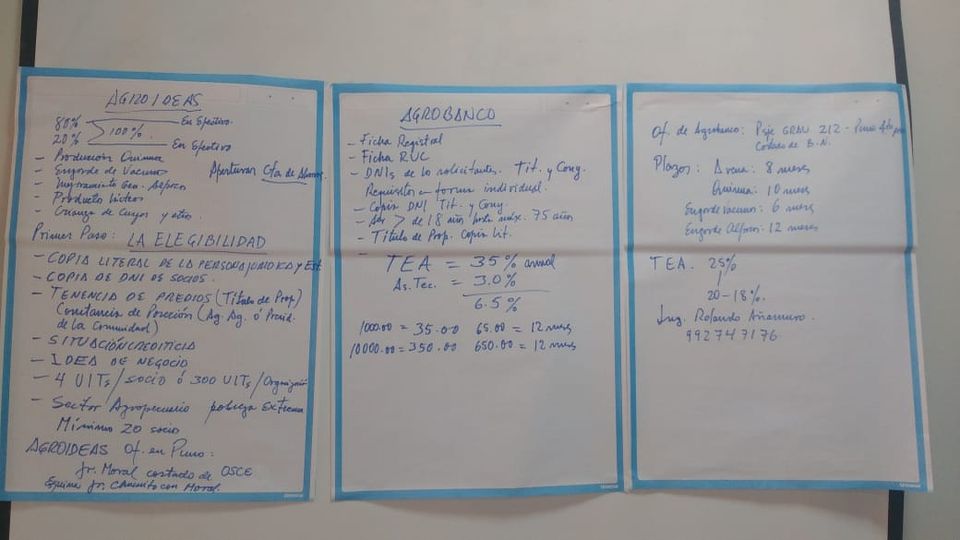 AGROIDEAS
80% En Efectivo.
100%.
20% En Efectivo
- Producción Quinua
- Engorde de Vacuno Aperturar Cta de Ahorro.
- Mejoramiento Gen. Alpaca
- Producto lácteos
- Crianza de Cuyes y otros.
Primer Paso: LA ELEGIBILIDAD
- COPIA LITERAL DE LA PERSONA JURIDICA Y Est
- COPIA DE DNI DE SOCIOS.
- TENENCIA DE PREDIOS (Título de Prop)
(Constancia de Poseción (Ag. Ag. ó Presid.
de la Comunidad)
- SITUACIÓN CREDITICIA
- IDEA DE NEGOCIO
- 4 UITs/socio ó 300 UITs/Organización
- Sector Agropecuario pobreza Extrema
Mínimo 20 socio
AGROIDEAS Of. en Puno:
Jr. Moral costado de OSCE
Esquina Jr. Chucuito con Moral.
AGROBANCO
- Ficha Registral
- Ficha RUC
- DNIs de los solicitantes. Tit. y Cony.
Requisitos en forma individual.
- Copia DNI Tit. y Cony.
- Ser > de 18 años hasta máx. 75 años
- Título de Prop. Copia Lit.
-
TEA = 35% anual
As. Tec. = 3.0%
6.5%
1000.00 = 35.00 65.00 = 12 meses
10000.00 = 350.00 650.00 = 12 meses
Of. de Agrobanco: Psje GRAU 212 - Puno 4to piso
Costado de B.N.
Plazos: Avena: 8 meses
Quinua: 10 meses
Engorde Vacunos: 6 meses
Engorde Alpacas: 12 meses
TEA. 25%
20-18%.
Ing. Rolando Añamuro.
992747176.